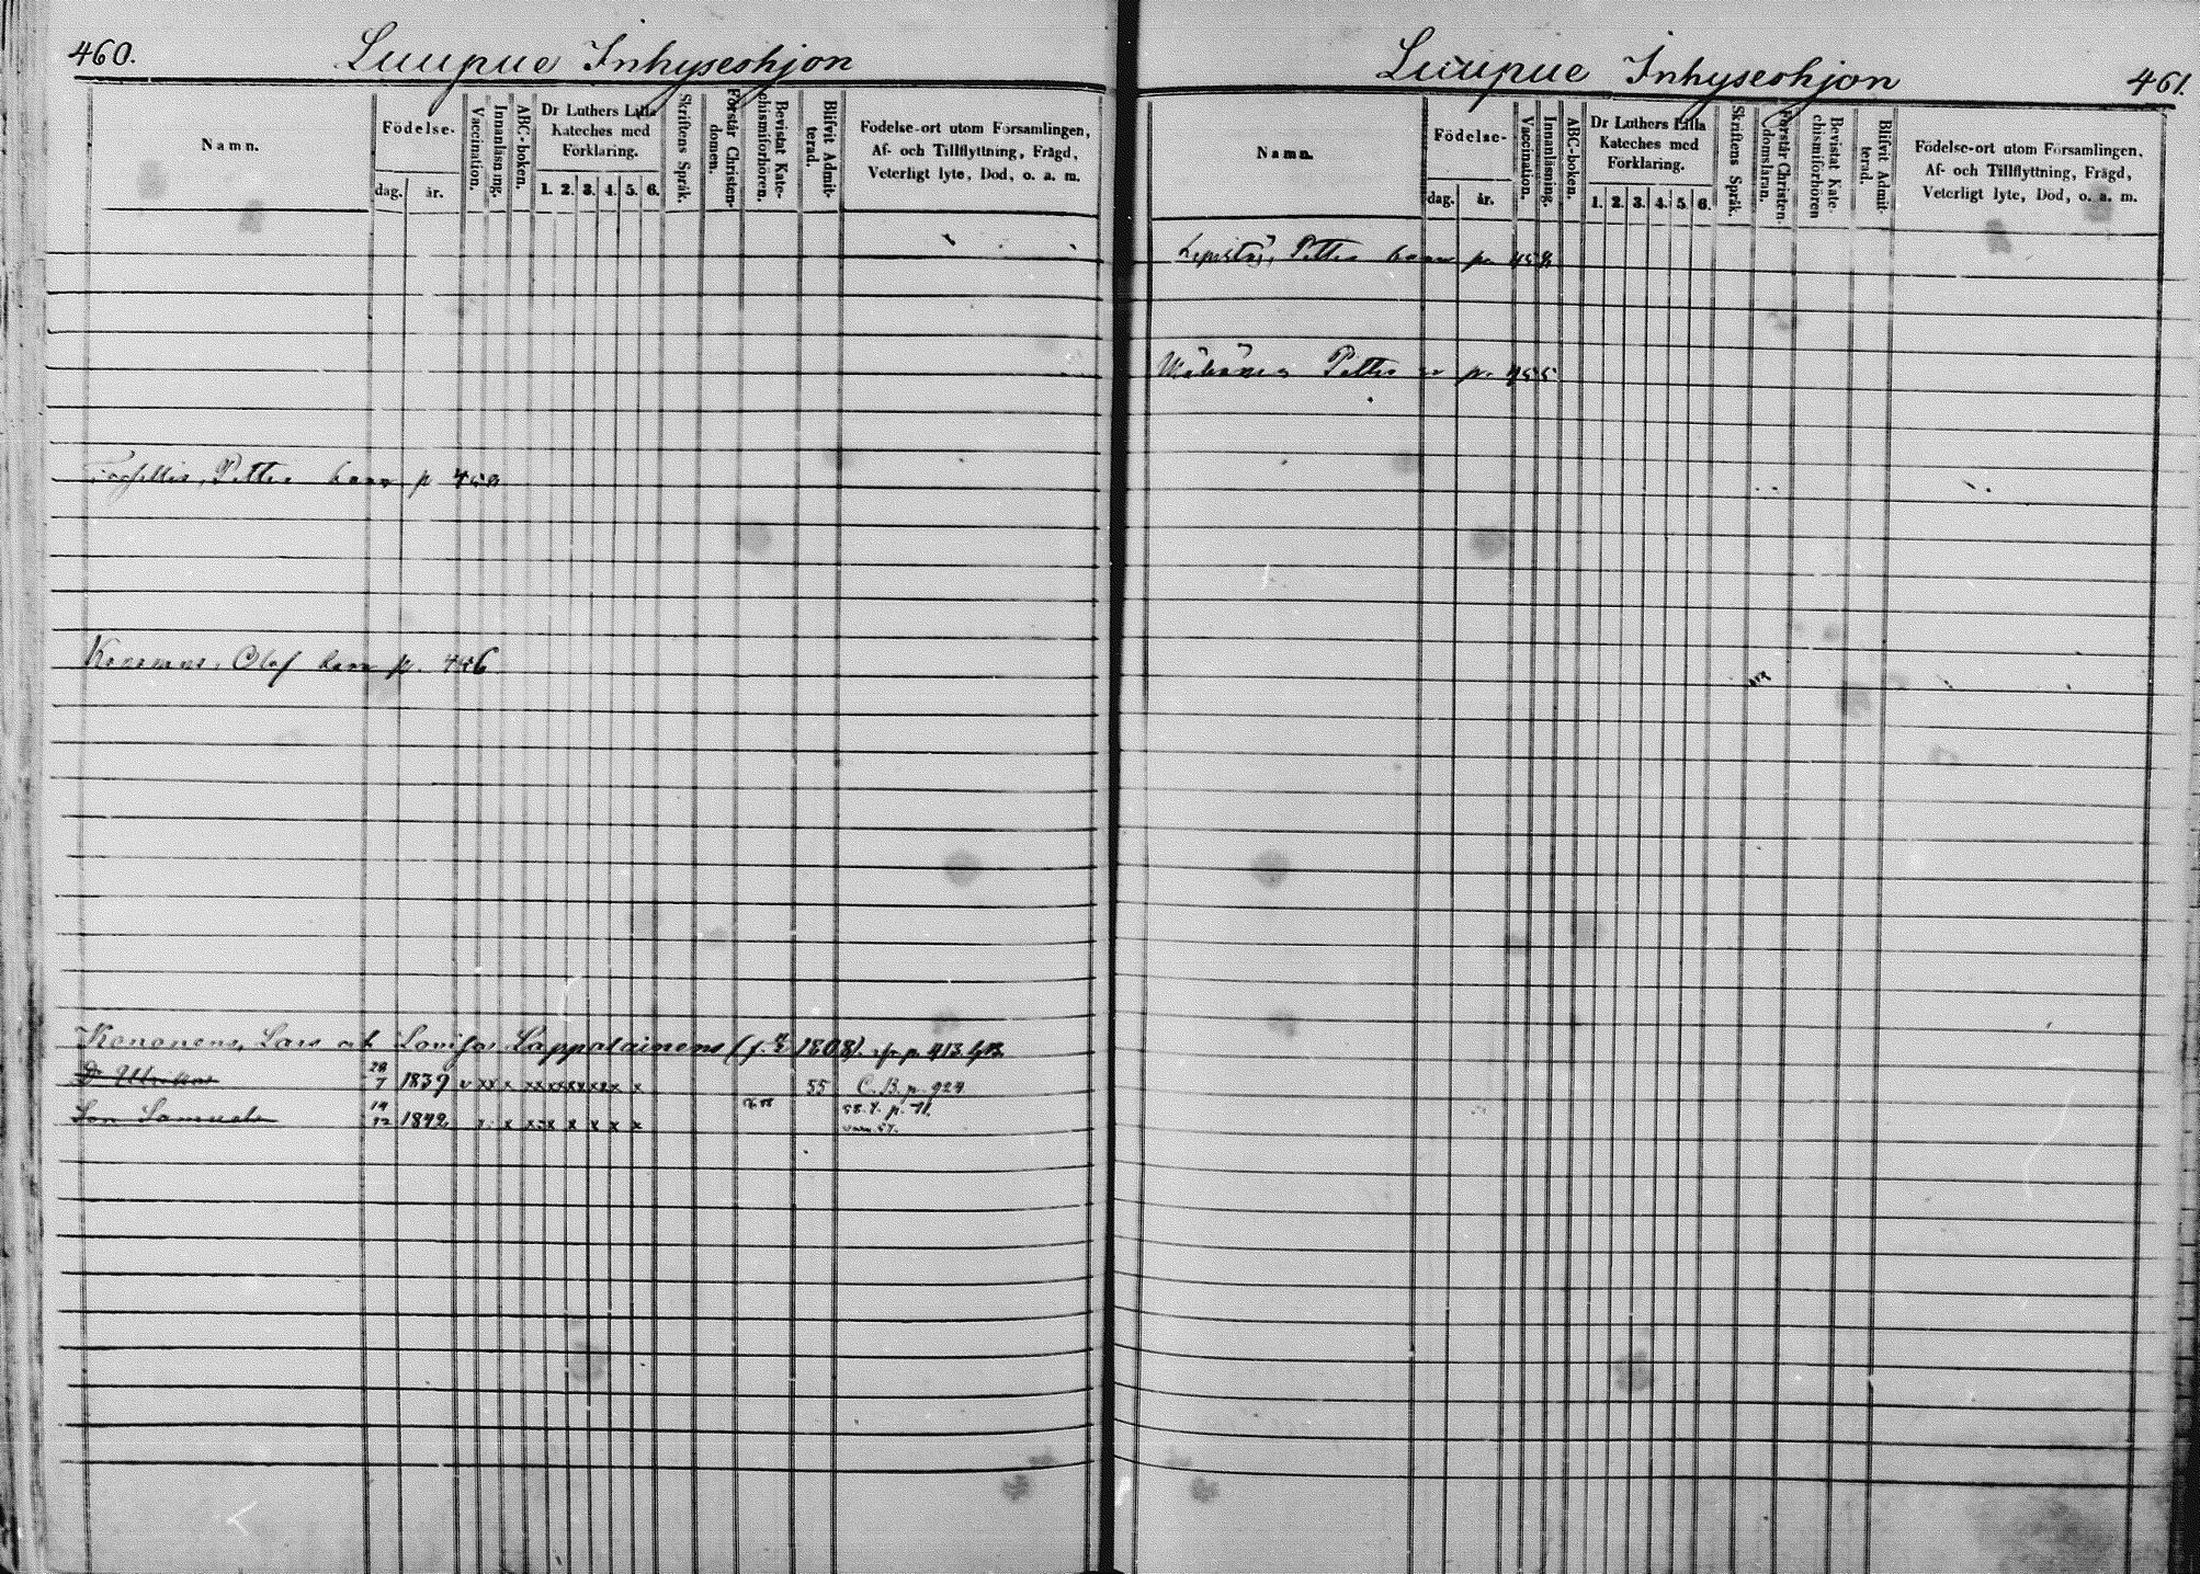 460.
Luupue Inhyseshjon
Namn.
Födelse-
dag.
år.
Vaccination.
Innanläsning.
ABC-boken.
Dr Luthers Lilla
Kateches med
Förklaring.
1. 2. 3. 4. 5. 6.
Skriftens Språk.
Förstår Christen-
domen.
Bevistat Kate-
chismiförhören.
Blifvit Admit-
terad.
Födelse-ort utom Församlingen,
Af- och Tillflyttning, Frägd,
Veterligt lyte, Död, o. a. m.
Petter barn p
Olof barn p. 446
Kononens, Lars ab Lovisas Lappalainens (f. 1808). p. 413
D. Ulrikas 28/7 1839 v xx x x x x x x x x x 55 C. B. p. 924
Son Samuels 19/12 1842 x x x x x x x x 58. p. 71.
Luupue Inhyseshjon
461.
Namn.
Födelse-
dag.
år.
Vaccination.
Innanläsning.
ABC-boken.
Dr Luthers Lilla
Kateches med
Förklaring.
1. 2. 3. 4. 5. 6.
Skriftens Språk.
Förstår Christen-
domsläran.
Bevistat Kate-
chismiförhören
Blifvit Admit-
terad.
Födelse-ort utom Församlingen,
Af- och Tillflyttning, Frägd,
Veterligt lyte, Död, o. a. m.
Lepistö, Petter barn p. 458
Petter p. 455